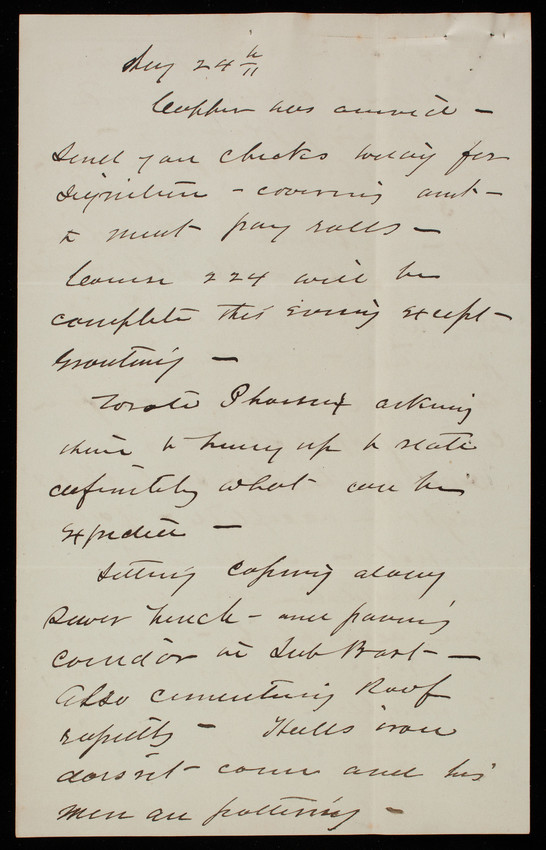 Aug 24th
Copper has arrived -
Send you checks today for
signature - covering amt
to meet pay rolls -
Course 224 will be
complete this evening except
grouting -
Wrote Phoenix asking
them to hurry up & state
definitely what can be
expected -
Setting coping along
sewer trench - and paving
corridor in Sub Basmt -
Also cementing Roof
rapidly - Halls iron
doesn't come and his
men are pottering -